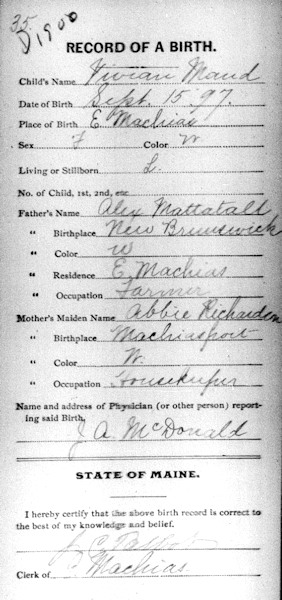 35
1900
RECORD OF A BIRTH.
Child's Name Vivian Maud
Date of Birth Sept. 15. 97.
Place of Birth E Machias
Sex F Color W
Living or Stillborn L.
No. of Child, 1st, 2nd, etc
Father's Name Alex Mattatall
" Birthplace New Brunswick
" Color W
" Residence E. Machias
" Occupation Farmer
Mother's Maiden Name Abbie Richardson
" Birthplace Machiasport
" Color W.
" Occupation Housekeeper
Name and address of Physician (or other person) report-
ing said Birth.
J. A. McDonald
STATE OF MAINE.
I hereby certify that the above birth record is correct to
the best of my knowledge and belief.
Clerk of E Machias